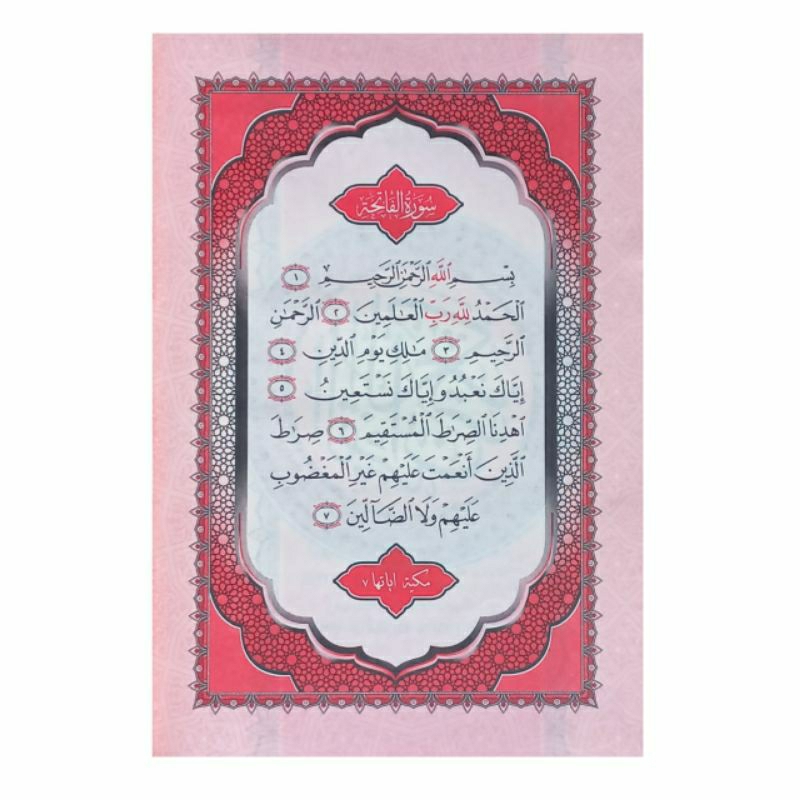 سُورَةُ الفَاتِحَةِ
بِسْمِ اللَّهِ الرَّحْمَٰنِ الرَّحِيمِ ١
الْحَمْدُ لِلَّهِ رَبِّ الْعَالَمِينَ ٢ الرَّحْمَٰنِ
الرَّحِيمِ ٣ مَالِكِ يَوْمِ الدِّينِ ٤
إِيَّاكَ نَعْبُدُ وَإِيَّاكَ نَسْتَعِينُ ٥
اهْدِنَا الصِّرَاطَ الْمُسْتَقِيمَ ٦ صِرَاطَ
الَّذِينَ أَنْعَمْتَ عَلَيْهِمْ غَيْرِ الْمَغْضُوبِ
عَلَيْهِمْ وَلَا الضَّالِّينَ ٧
مكية اياتها ٧